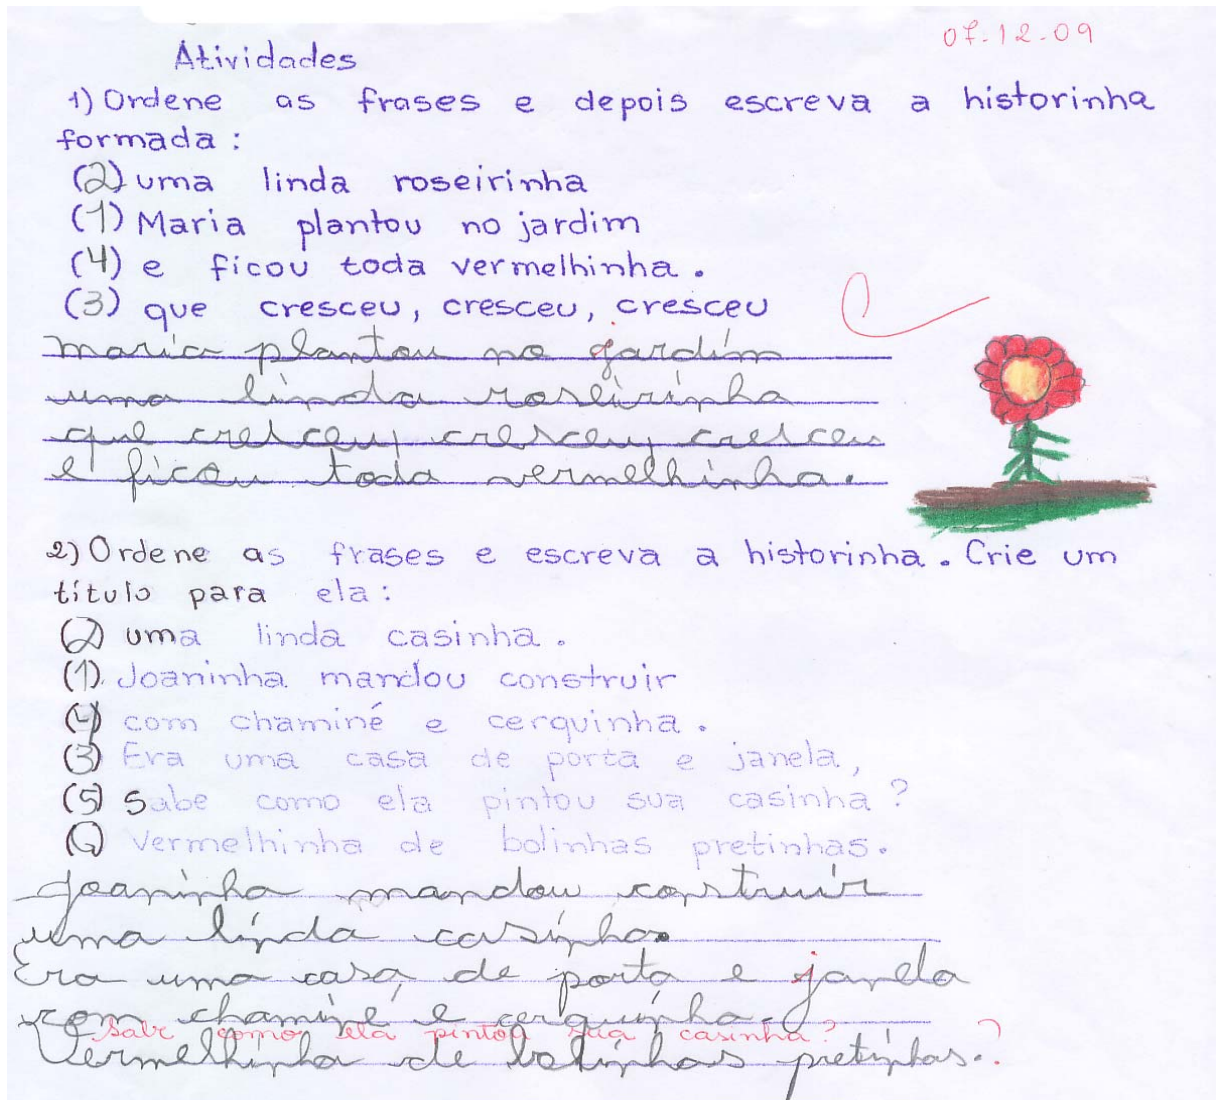 07.12.09
Atividades
1) Ordene as frases e depois escreva a historinha
formada:
(2) uma linda roseirinha
(1) Maria plantou no jardim
(4) e ficou toda vermelhinha.
(3) que cresceu, cresceu, cresceu
maria plantou no jardim
uma linda roseirinha
que cresceu, cresceu, cresceu
e ficou toda vermelhinha.
2) Ordene as frases e escreva a historinha. Crie um
título para ela:
(2) uma linda casinha.
(1) Joaninha mandou construir
(4) com chaminé e cerquinha.
(3) Era uma casa de porta e janela,
(5) Sabe como ela pintou sua casinha?
(6) Vermelhinha de bolinhas pretinhas.
Joaninha mandou construir
uma linda casinha.
Era uma casa, de porta e janela
com chaminé e cerquinha.
Sabe como ela pintou sua casinha?
Vermelhinha de bolinhas pretinhas.?